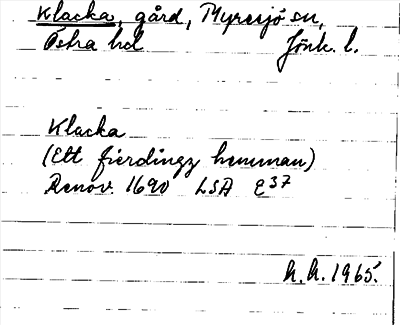 Klacka, gård, Myresjö sn,
Östra hd Jönk. l.
Klacka
(Ett fierdingz hemman)
Renov. 1690 LSA E37
h.h. 1965.